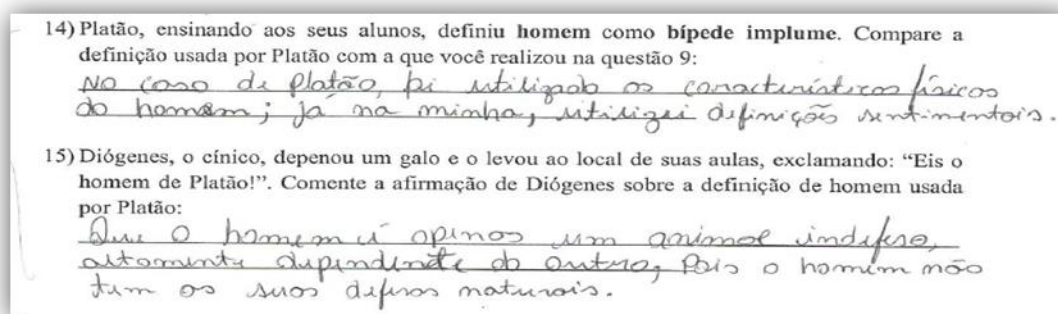 14) Platão, ensinando aos seus alunos, definiu homem como bípede implume. Compare a
definição usada por Platão com a que você realizou na questão 9:
No caso de Platão, foi utilizado as características físicas
do homem; já na minha, utilizei definições sentimentais.
15) Diógenes, o cínico, depenou um galo e o levou ao local de suas aulas, exclamando: “Eis o
homem de Platão!”. Comente a afirmação de Diógenes sobre a definição de homem usada
por Platão:
Que o homem é apenas um animal indefeso,
altamente dependente do outro, Pois o homem não
tem as suas defesas naturais.